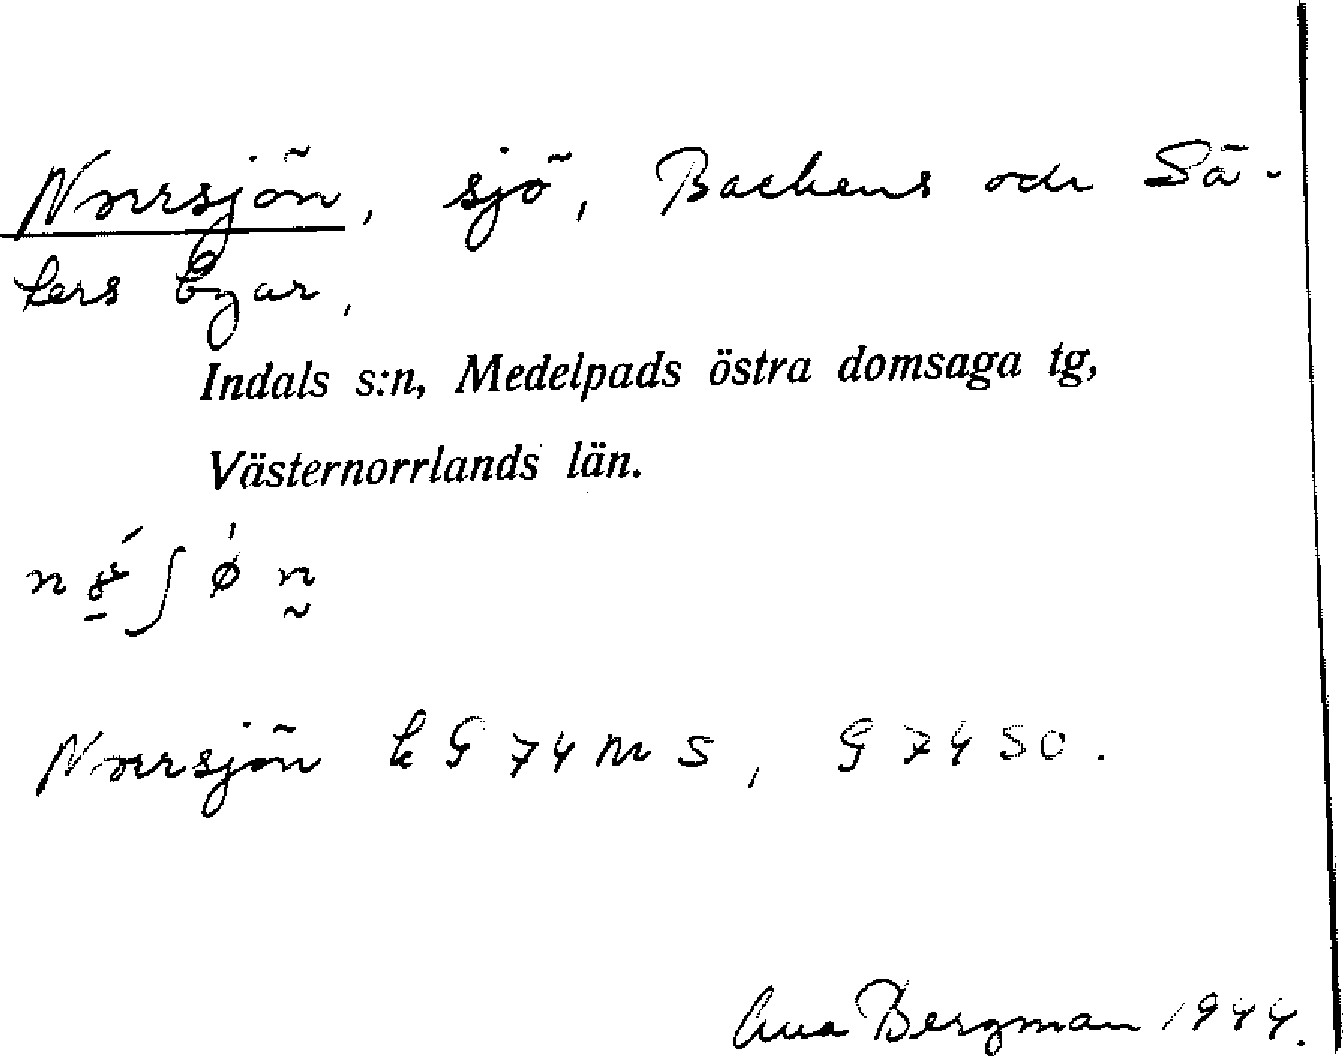 Norrsjön, sjö, Backens och Sä-
ters byar,
Indals s:n, Medelpads östra domsaga tg,
Västernorrlands län.
Norrsjön k G 74 m s, G 74 SO.
Bergman 1944.